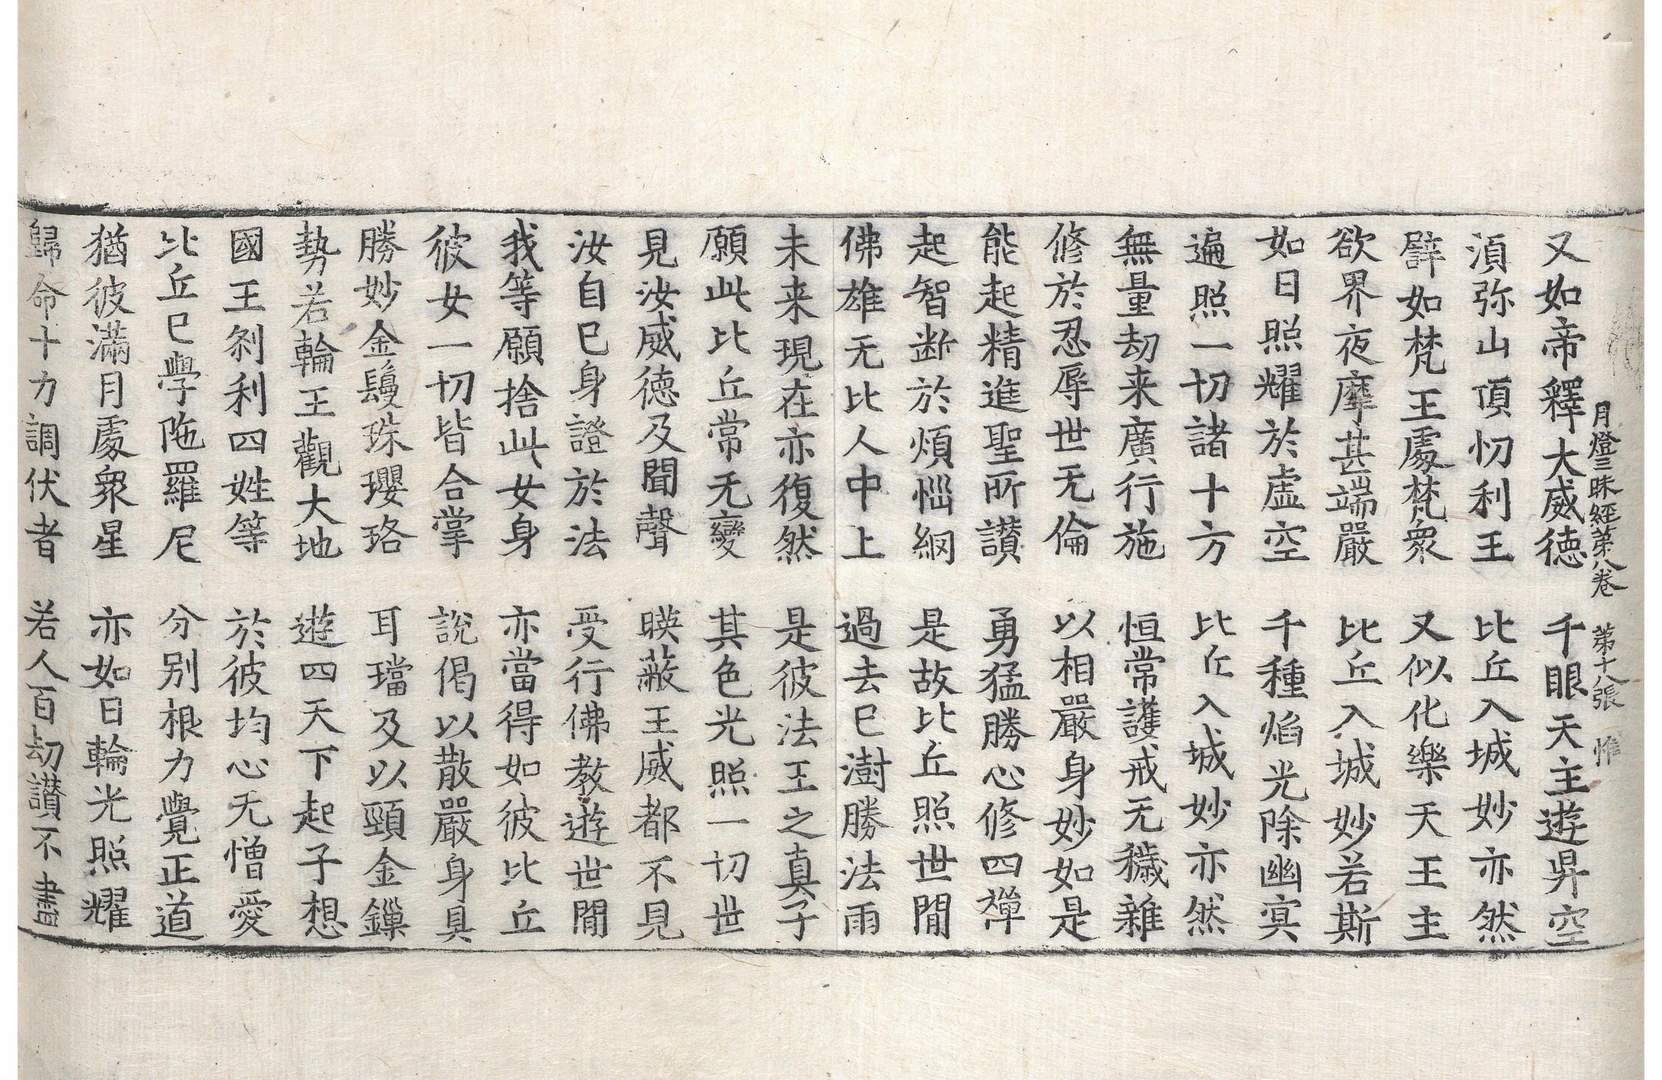 月燈三昧經第八卷 第十八張 惟
又如帝釋大威德 千眼天主遊昇空
湏弥山頂忉利王 比丘入城妙亦然
譬如梵王處梵衆 又似化樂天王主
欲界夜摩甚端嚴 比丘入城妙若斯
如日照耀於虛空 千種焰光除幽冥
遍照一切諸十方 比丘入城妙亦然
無量劫来廣行施 恒常護戒无穢雜
修於忍辱世无倫 以相嚴身妙如是
能起精進聖所讃 勇猛勝心修四禪
起智断於煩惱網 是故比丘照世閒
佛雄无比人中上 過去已澍勝法雨
未来現在亦復然 是彼法王之真子
願此比丘常无變 其色光照一切世
見汝威德及聞聲 暎蔽王威都不見
汝自已身證於法 受行佛教遊世閒
我等願捨此女身 亦當得如彼比丘
彼女一切皆合掌 說偈以散嚴身具
勝妙金鬘珠瓔珞 耳璫及以頸金鏁
勢若輪王觀大地 遊四天下起子想
國王刹利四姓等 於彼均心无憎愛
比丘已學陁羅尼 分别根力覺正道
猶彼滿月處衆星 亦如日輪光照耀
歸命十力調伏者 若人百劫讃不盡